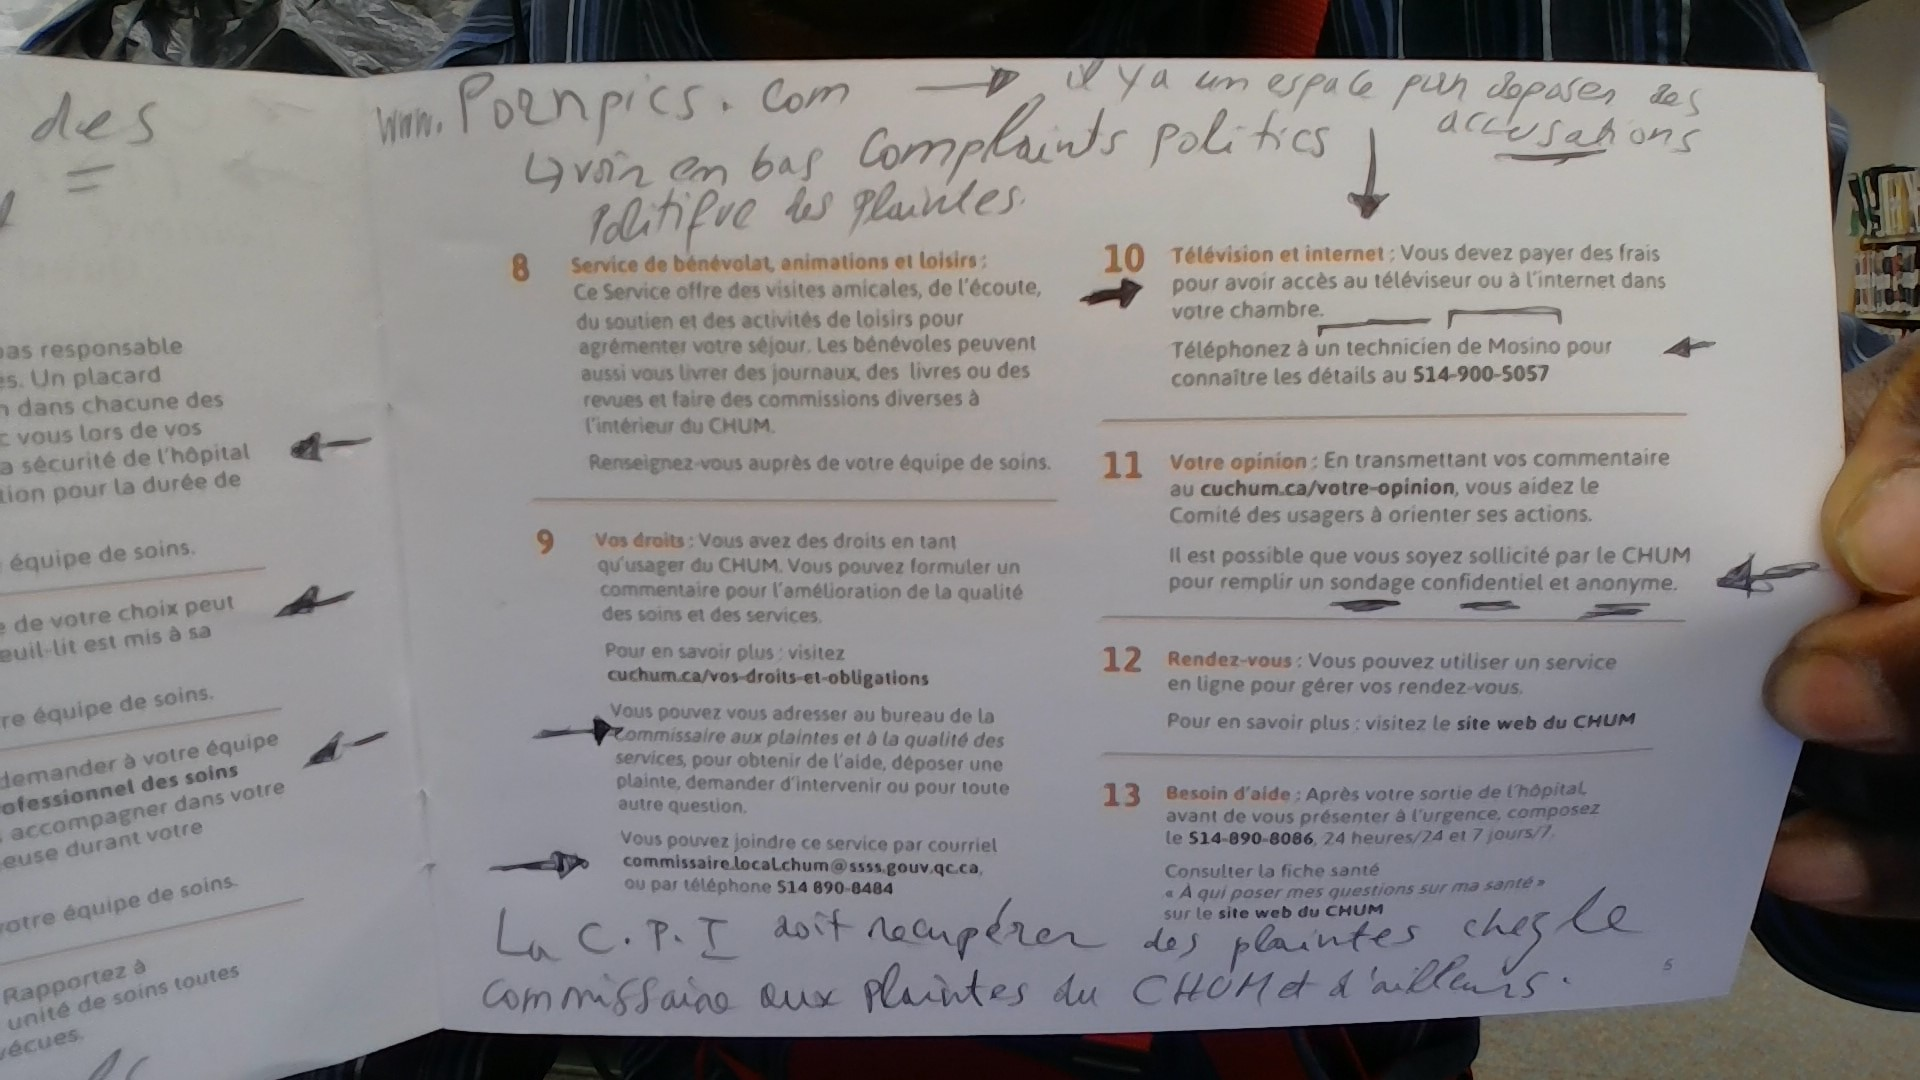 des
www.Pornpics.com → il y a un espace pour déposer des
accusations
↳ voir en bas Complaints politics
Politique des plaintes.
pas responsable
es. Un placard
n dans chacune des
c vous lors de vos
a sécurité de l'hôpital
tion pour la durée de
équipe de soins.
e de votre choix peut
euil-lit est mis à sa
re équipe de soins.
demander à votre équipe
ofessionnel des soins
accompagner dans votre
euse durant votre
votre équipe de soins.
Rapportez à
unité de soins toutes
vécues.
8 Service de bénévolat, animations et loisirs :
Ce Service offre des visites amicales, de l'écoute,
du soutien et des activités de loisirs pour
agrémenter votre séjour. Les bénévoles peuvent
aussi vous livrer des journaux, des livres ou des
revues et faire des commissions diverses à
l'intérieur du CHUM.
Renseignez-vous auprès de votre équipe de soins.
9 Vos droits : Vous avez des droits en tant
qu'usager du CHUM. Vous pouvez formuler un
commentaire pour l'amélioration de la qualité
des soins et des services.
Pour en savoir plus : visitez
cuchum.ca/vos-droits-et-obligations
Vous pouvez vous adresser au bureau de la
Commissaire aux plaintes et à la qualité des
services, pour obtenir de l'aide, déposer une
plainte, demander d'intervenir ou pour toute
autre question.
Vous pouvez joindre ce service par courriel
commissaire.local.chum@ssss.gouv.qc.ca,
ou par téléphone 514 890-8484
10 Télévision et internet : Vous devez payer des frais
pour avoir accès au téléviseur ou à l'internet dans
votre chambre.
Téléphonez à un technicien de Mosino pour
connaître les détails au 514-900-5057
11 Votre opinion : En transmettant vos commentaire
au cuchum.ca/votre-opinion, vous aidez le
Comité des usagers à orienter ses actions.
Il est possible que vous soyez sollicité par le CHUM
pour remplir un sondage confidentiel et anonyme.
12 Rendez-vous : Vous pouvez utiliser un service
en ligne pour gérer vos rendez-vous.
Pour en savoir plus : visitez le site web du CHUM
13 Besoin d'aide : Après votre sortie de l'hôpital,
avant de vous présenter à l'urgence, composez
le 514-890-8086, 24 heures/24 et 7 jours/7.
Consulter la fiche santé
« À qui poser mes questions sur ma santé »
sur le site web du CHUM
La C.P.I doit recupérer des plaintes chez le
commissaire aux plaintes du CHUM et d'ailleurs.
5